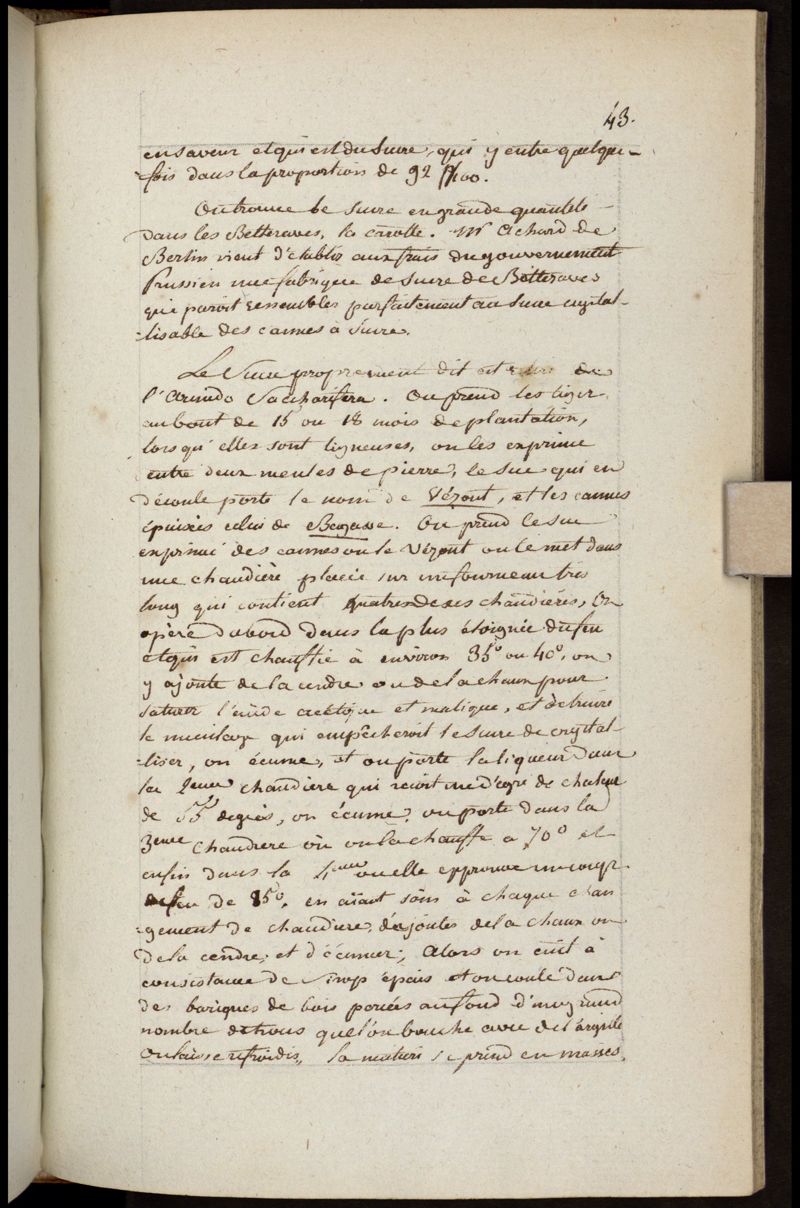 43.
en saveur et qui est du Sucre, qui y entre quelque-
-fois dans la proportion de 92 p%00.
On trouve le Sucre en grande quantité
dans les Betteraves, la carotte. Mr Achard de
Berlin vient d'établir aux frais du gouvernement
Prussien une fabrique de Sucre de Betteraves
qui paroit ressembler parfaitement au Sucre crystal-
-lisable des cannes à Sucre.
Le Sucre proprement dit est de
l'Arundo Saccharifera. On prend les tiges
au bout de 15 ou 18 mois de plantation,
lorsqu'elles sont ligneuses, on les exprime
entre deux meules de pierre, le suc qui en
découle porte le nom de Vézout, et les cannes
épuisées celui de Bagasse. On prend le suc
exprimé des cannes ou le Vézout on le met dans
une chaudière placée sur un fourneau très
long qui contient quatre de ces chaudières, on
opère d'abord dans la plus éloignée du feu
et qui est chauffée à environ 35° ou 40°, on
y ajoute de la cendre ou de la chaux pour
saturer l'acide acétique et malique, et détruire
le mucilage qui empêcheroit le Sucre de crystal-
-liser, on écume, et on porte la liqueur dans
la 2eme chaudiere qui reçoit un degré de chaleur
de 55 degrés, on écume, on porte dans la
3eme chaudiere où on la chauffe a 70° et
enfin dans la 4eme ou elle epprouve un coup
de feu de 85°. en aïant soin à chaque chan
-gement de chaudiere, d'ajouter de la chaux ou
de la cendre, et d'écumer; Alors on cuit à
consistance de Sirop épais et on coule dans
des bariques de bois percées au fond d'un grand
nombre de trous que l'on bouche avec de l'argile
on laisse refroidir, la matiere se prend en masses,